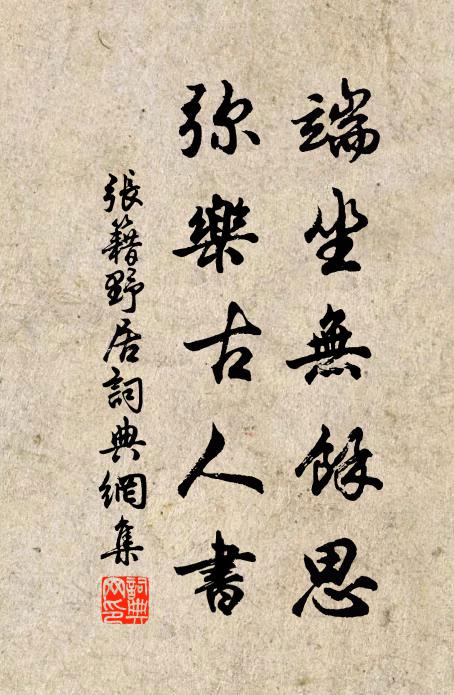 端坐無餘思
弥樂古人書
張籍野居詞典網集
詞典網印